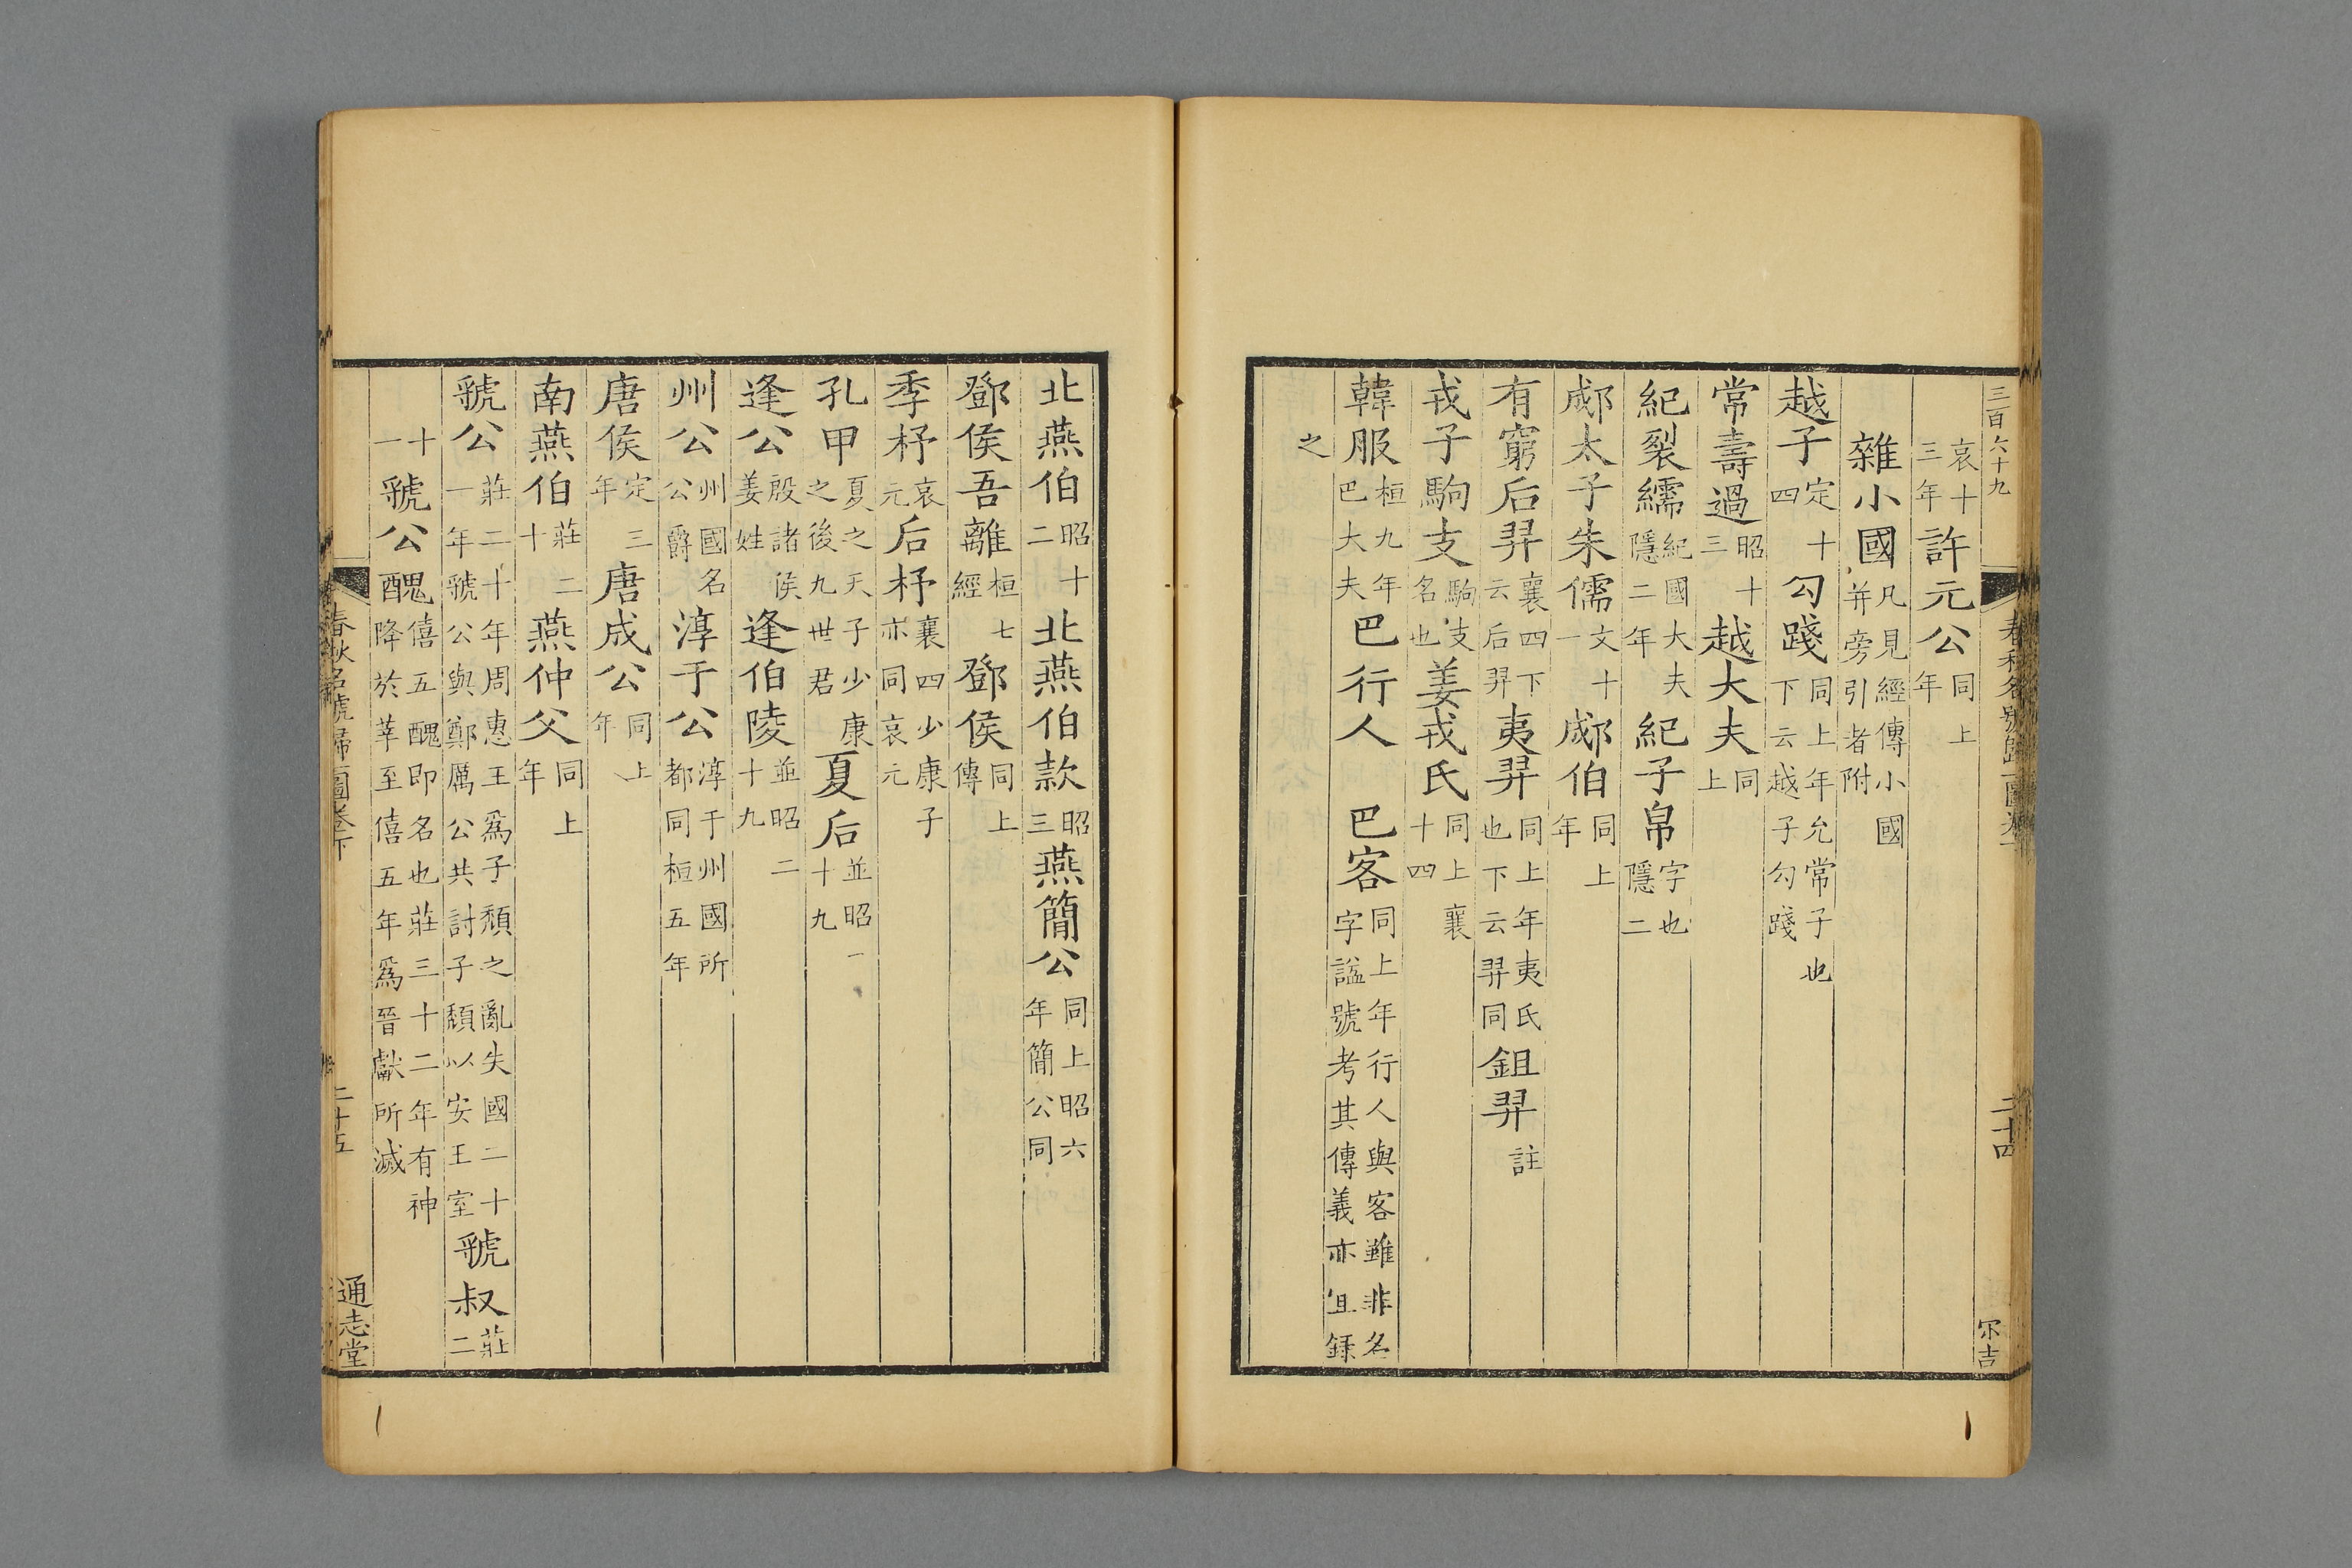 三百六十九
春秋名號歸一圖卷下
二十四
尔吉
哀十三年許元公同上年
雜小國凡見經傳小國并旁引者附
越子定十四勾踐同上年允常子也下云越子勾踐
常壽過昭十三越大夫同上
紀裂繻紀國大夫隱二年紀子帛字也隱二
郕太子朱儒文十一郕伯同上年
有窮后羿襄四下云后羿夷羿同上年夷氏也下云羿同鉏羿註
戎子駒支駒支名也姜戎氏同上襄十四
韓服桓九年巴大夫巴行人巴客同上年行人與客雖非名字謚號考其傳義亦宜錄
之
北燕伯昭十二北燕伯款昭三燕簡公同上昭六年簡公同
鄧侯吾離桓七經鄧侯同上傳
季杼哀元后杼襄四少康子亦同哀元
孔甲夏之天子少康之後九世君夏后並昭一十九
逄公殷諸侯姜姓逄伯陵並昭二十九
州公州國名公爵淳于公淳于州國所都同桓五年
唐侯定三年唐成公同上年
南燕伯莊二十燕仲父同上年
虢公莊二十一年周惠王爲子頹之亂失國二十年虢公與鄭厲公共討子頹以安王室虢叔莊二
十一虢公醜僖五醜即名也莊三十二年有神降於莘至僖五年爲晉獻所滅
春秋名號歸一圖卷下
二十五
通志堂